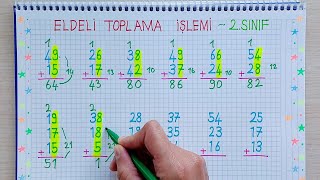 ELDELİ TOPLAMA İŞLEMİ - 2.SINIF
1 1 1 1 1 1
49 26 49 66 54
+ 15 + 17 13 + 10 + 37 16 + 24 10 + 28 12
64 43 80 86 90 82
2 2
19 38 28 54 25
17 18 35 23 17 17
+ 15 21 + 5 + 16 + 13
51 1